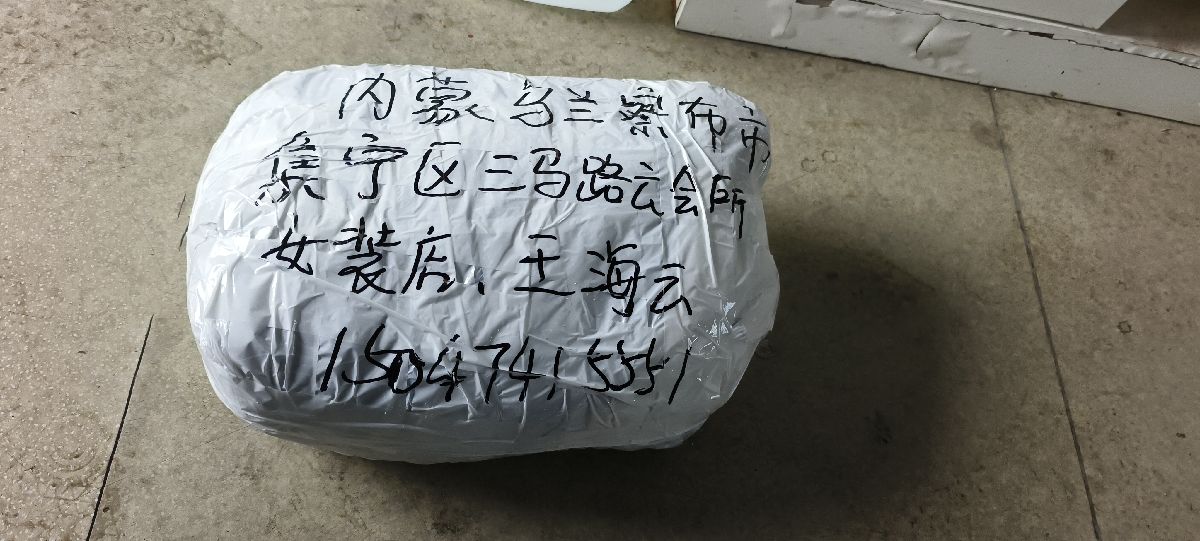 内蒙乌兰察布市
集宁区三马路云会所
女装店、王海云
15047415551